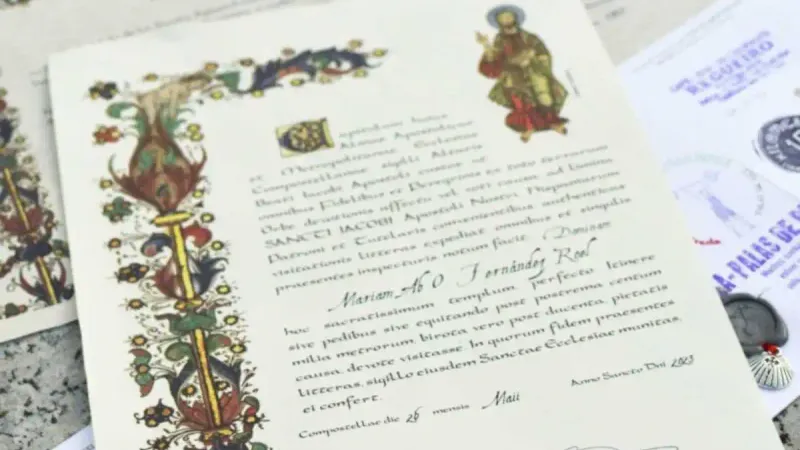 apitulum huius
Almae Apostolicae
et Metropolitanae Ecclesiae
Compostellanae sigilli Altaris
Beati Jacobi Apostoli custos ut
omnibus Fidelibus et Peregrinis ex toto terrarum
Orbe devotionis affectu vel voti causa ad limina
SANCTI IACOBI Apostoli Nostri Hispaniarum
Patroni et Tutelaris convenientibus authenticas
visitationis litteras expediat omnibus et singulis
praesentes inspecturis notum facit Dominam
Mariam Ab O Fernández Reel
hoc sacratissimum templum, perfecto Itinere
sive pedibus sive equitando post postrema centum
milia metrorum, birota vero post ducenta, pietatis
causa, devote visitasse. In quorum fidem praesentes
litteras, sigillo eiusdem Sanctae Ecclesiae munitas,
ei confert.
Compostellae die 26 mensis Maii Anno Sancto Dni 2023
REGUEIRO
A-PALAS DE